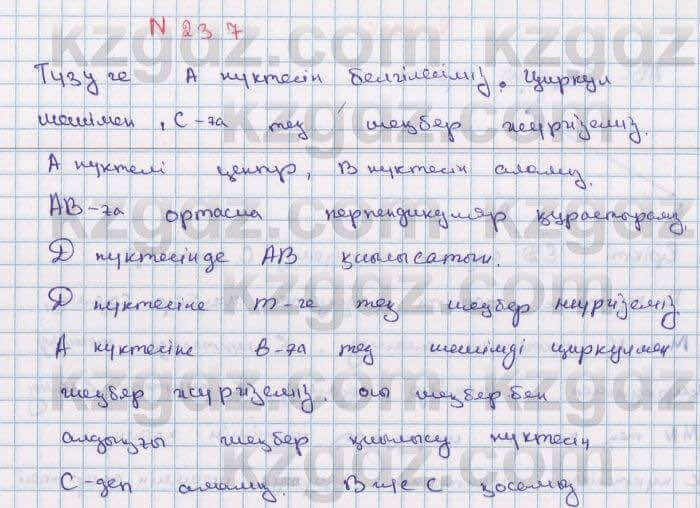 N 237
Түзуге А нүктесін белгілейміз. Циркул
шешімен, С-ға тең шеңбер жүргіземіз.
А нүктелі центр, В нүктесін аламыз.
АВ-ға ортасына перпендикуляр құрастырамыз,
D нүктесінде АВ қиылысатын.
D нүктесіне m-ге тең шеңбер жүргіземіз
А нүктесіне в-ға тең шешімді циркулмен
шеңбер жүргіземіз. осы шеңбербен
алдыңғы шеңбер қиылысу нүктесін
С-деп аламыз. В мен С қосамыз
kzgdz.com